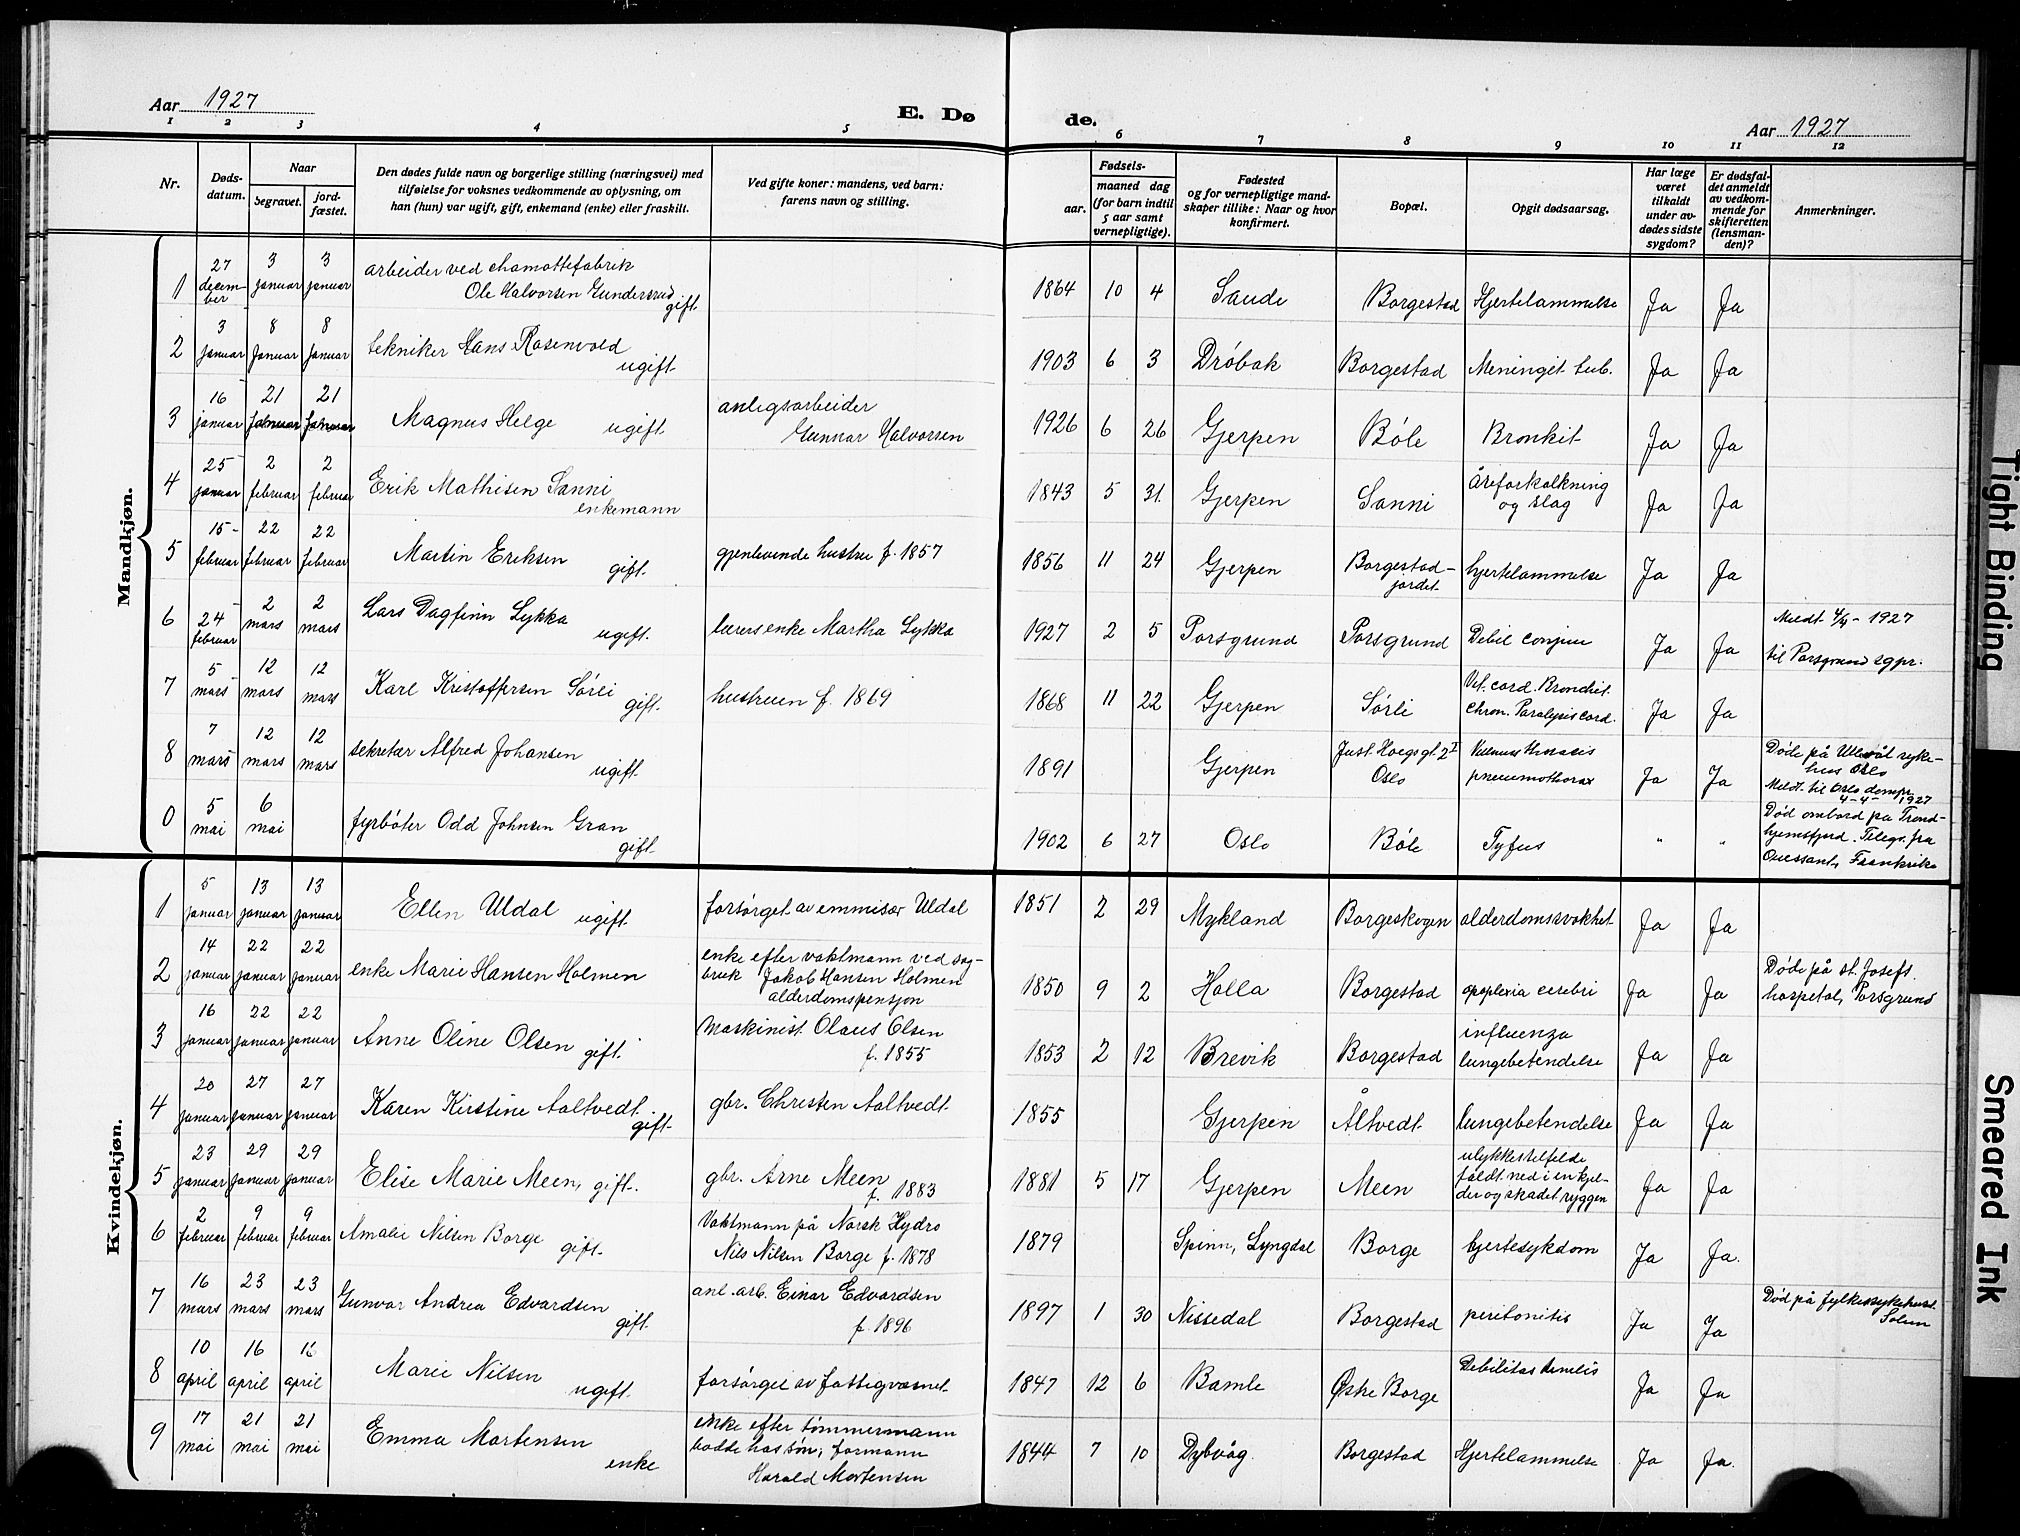 Aar 1927
E. Dø de.
Aar 1927
1 2 3 4 5 6 7 8 9 10 11 12
Nr.
Døds-
datum.
Naar
begravet.
jord-
fæstet.
Den dødes fulde navn og borgerlige stilling (næringsvei) med
tilføielse for voksnes vedkommende av oplysning, om
han (hun) var ugift, gift, enkemand (enke) eller fraskilt.
Ved gifte koner: mandens, ved barn:
farens navn og stilling.
Fødsels-
aar.
maaned dag
(for barn indtil
5 aar samt
vernepligtige).
Fødested
og for vernepligtige mand-
skaper tillike: Naar og hvor
konfirmert.
Bopæl.
Opgit dødsaarsag.
Har læge
været
tilkaldt
under av-
dødes sidste
sygdom?
Er dødsfal-
det anmeldt
av vedkom-
mende for
skifteretten
(lensman-
den)?
Anmerkninger.
Mandkjøn.
1 27 decem-ber 3 januar 3 januar
arbeider ved chamottefabrik
Ole Halvorsen Gundersrud gift.
1864 10 4 Saude Borgestad Hjertelammelse Ja Ja
2 3 januar 8 januar 8 januar
tekniker Hans Rosenvold
ugift.
1903 6 3 Drøbak Borgestad Meningit. tub. Ja Ja
3 16 januar 21 januar 21 januar
Magnus Helge ugift.
anlegsarbeider
Gunnar Halvorsen
1926 6 26 Gjerpen Bøle Bronkit Ja Ja
4 25 januar 2 februar 2 februar
Erik Mathisen Sanni
enkemann
1843 5 31. Gjerpen Sanni
åreforkalkning
og slag
Ja Ja
5 15 februar 22 februar 22 februar
Martin Eriksen gift.
gjenlevende hustru f. 1857
1856 11 24 Gjerpen
Borgestad-
jordet.
hjertelammelse Ja Ja
6 24 februar 2 mars 2 mars
Lars Dagfinn Lykka
ugift.
lærers enke Martha Lykka
1927 2 5 Porsgrund Porsgrund Debil conjen Ja Ja
Meldt 4/4 - 1927
til Porsgrund sgpr.
7 5 mars 12 mars 12 mars
Karl Kristoffersen Sørli gift.
hustruen f. 1869
1868 11 22 Gjerpen Sørli
Vit. cord. Bronchit.
chron. Paralysis cord.
Ja Ja
8 7 mars 12 mars 12 mars
sekretær Alfred Johansen
ugift.
1891 Gjerpen
Just. Hoegs gt. 2 I
Oslo
pneumothorax
Ja Ja
Døde på Ulevål syke-
hus Oslo
Meldt. til Oslo dompr.
4-4- 1927
0 5 mai 6 mai
fyrbøter Odd Johnsen Gran
gift.
1902 6 27 Oslo Bøle Tyfus " "
Død ombord på Trond-
hjemsfjord. Telegr. fra
Quessant, Frankrike
Kvindekjøn.
1 5 januar 13 januar 13 januar
Ellen Uldal ugift.
forsørget av emmisær Uldal
1851 2 29 Mykland Borgeskogen alderdomssvakhet Ja Ja
2 14 januar 22 januar 22 januar
enke Marie Hansen Holmen
enke efter vaktmann ved sag-
bruk Jakob Hansen Holmen
alderdomspensjon
1850 9 2 Holla Borgestad apoplexia cerebri Ja Ja
Døde på st. Josefs.
hospetal, Porsgrund
3 16 januar 22 januar 22 januar
Anne Oline Olsen gift.
Maskinist. Olaus Olsen
f. 1855
1853 2 12 Brevik Borgestad
influenza
lungebetendelse
Ja Ja
4 20 januar 27 januar 27 januar
Karen Kirstine Aaltvedt.
gift.
gbr. Christen Aaltvedt
1855 Gjerpen Åltvedt. lungebetendelse Ja Ja
5 23 januar 29 januar 29 januar
Elise Marie Meen, gift.
gbr. Arne Meen
f. 1883
1881 5 17 Gjerpen Meen
ulykkestilfelde
faldt ned i en kjel-
der og skadet ryggen
Ja Ja
6 2 februar 9 februar 9 februar
Amalie Nilsen Borge gift.
Vaktmann på Norsk Hydro
Nils Nilsen Borge f. 1878
1879 Spinn, Lyngdal Borge hjertesykdom Ja Ja.
7 16 mars 23 mars 23 mars
Gunvor Andrea Edvardsen
gift.
anl. arb. Einar Edvardsen
f. 1896
1897 1 30 Nissedal Borgestad peritonitis Ja Ja
Død på fylkessykehust.
Solum
8 10 april 16 april 16 april
Marie Nilsen
ugift.
forsørget av fattigvæsnet.
1847 12 6 Bamle Østre Borge Debilitas senilis Ja Ja
9 17 mai 21 mai 21 mai
Emma Mortensen
enke
enke efter tømmermann
bodde hos søn, formann
Harald Mortensen
1844 7 10 Dybvåg. Borgestad Hjertelammelse Ja Ja.
Tight Binding
Smeared Ink